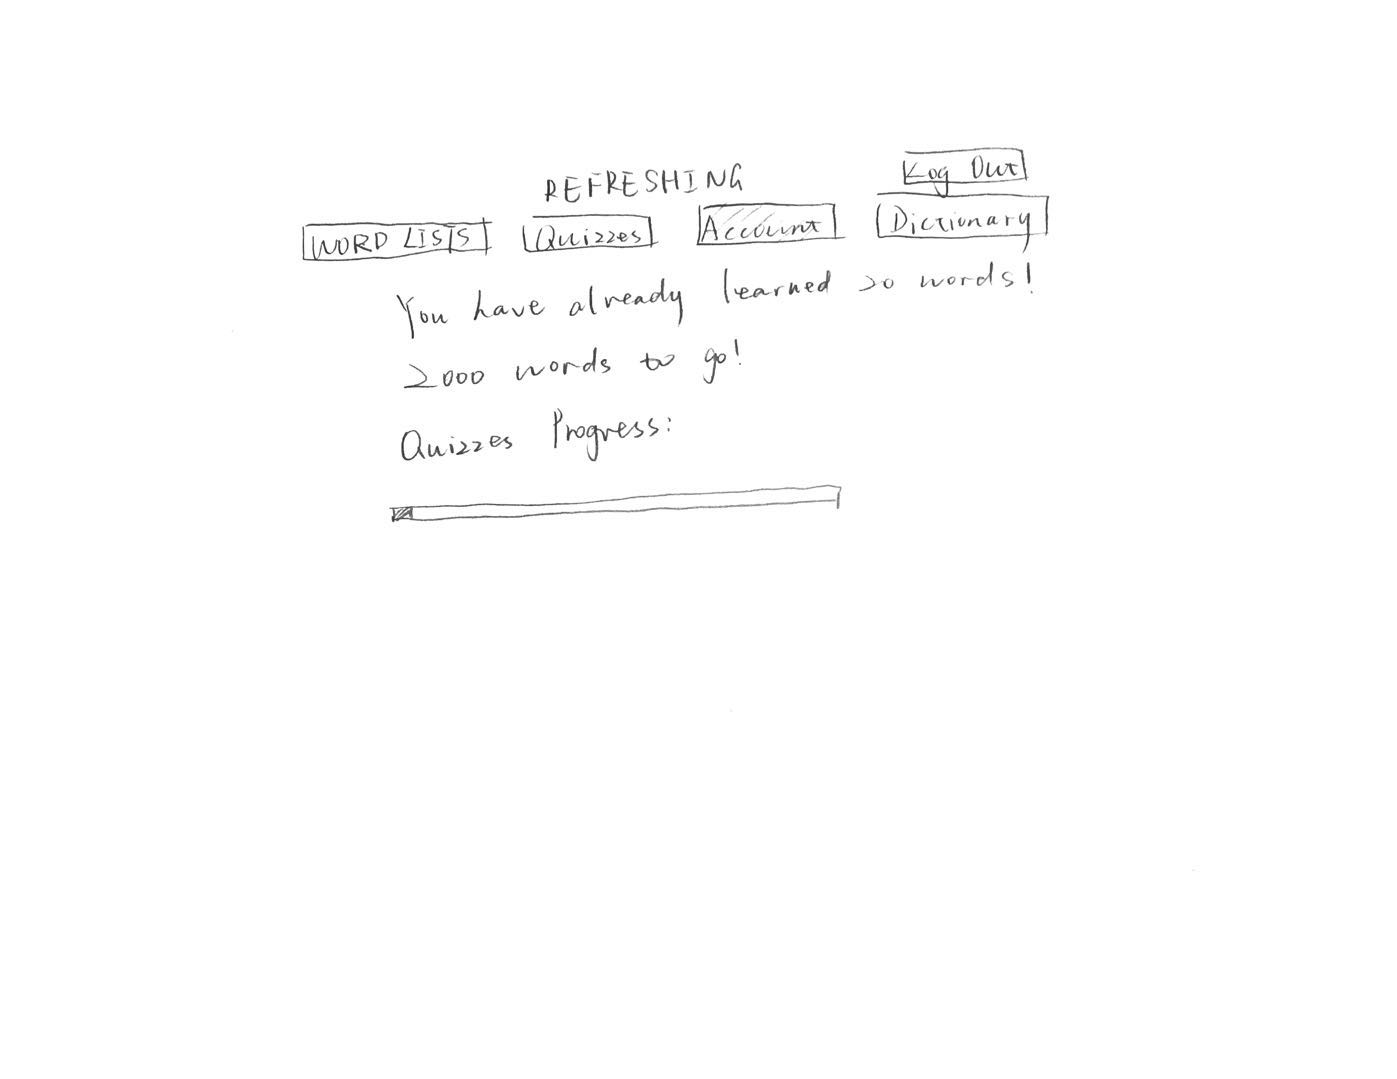 REFRESHING
Log Out
WORD LISTS Quizzes Account Dictionary
You have already learned 20 words!
2000 words to go!
Quizzes Progress: